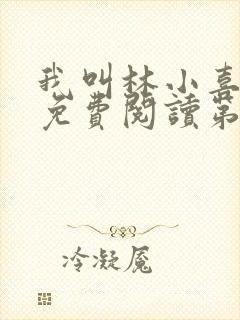 我叫林小喜
免費閱讀第
冷凝魘